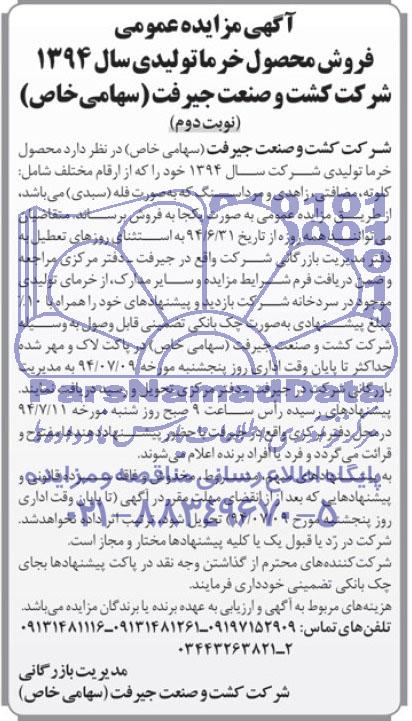 آگهی مزایده عمومی
فروش محصول خرما تولیدی سال ۱۳۹۴
شرکت کشت و صنعت جیرفت (سهامی خاص)
(نوبت دوم)
شرکت کشت و صنعت جیرفت (سهامی خاص) در نظر دارد محصول
خرما تولیدی شرکت سال ۱۳۹۴ خود را که از ارقام مختلف شامل:
کلوته، مضافتی، زاهدی و مرداسنگ که به صورت فله (سبدی) می‌باشد،
از طریق مزایده عمومی به صورت یکجا به فروش برساند. متقاضیان
می‌توانند همه روزه از تاریخ ۹۴/۶/۳۱ به استثنای روزهای تعطیل به
دفتر مدیریت بازرگانی شرکت واقع در جیرفت ـ دفتر مرکزی مراجعه
و ضمن دریافت فرم شرایط مزایده و سایر مدارک، از خرمای تولیدی
موجود در سردخانه شرکت بازدید و پیشنهادهای خود را همراه با ۱۰٪
مبلغ پیشنهادی به‌صورت چک بانکی تضمینی قابل وصول به وسیله
شرکت کشت و صنعت جیرفت (سهامی خاص) در پاکت لاک و مهر شده
حداکثر تا پایان وقت اداری روز پنجشنبه مورخه ۹۴/۰۷/۰۹ به مدیریت
بازرگانی شرکت در جیرفت ـ دفتر مرکزی تحویل و رسید دریافت نمایند.
پیشنهادهای رسیده رأس ساعت ۹ صبح روز شنبه مورخه ۹۴/۷/۱۱
در محل دفتر مرکزی واقع در جیرفت با حضور پیشنهاددهنده‌ها مفتوح و
قرائت می‌گردد و فرد یا افراد برنده اعلام می‌شوند.
به پیشنهادهای مبهم، مشروط، مخدوش و فاقد سپرده قانونی و
پیشنهادهایی که بعد از از انقضای مهلت مقرر در آگهی (تا پایان وقت اداری
روز پنجشنبه مورخ ۹۴/۰۷/۰۹) تحویل شود، ترتیب اثر داده نخواهد شد.
شرکت در رّد یا قبول یک یا کلیه پیشنهادها مختار و مجاز است.
شرکت‌کننده‌های محترم از گذاشتن وجه نقد در پاکت پیشنهادها بجای
چک بانکی تضمینی خودداری فرمایند.
هزینه‌های مربوط به آگهی و ارزیابی به عهده برنده یا برندگان مزایده می‌باشد.
تلفن‌های تماس: ۰۹۱۹۷۱۵۲۹۰۹ـ ۰۹۱۳۱۴۸۱۲۶۱ـ ۰۹۱۳۱۴۸۱۱۱۶
۰۳۴۴۳۲۶۳۸۲۱ـ۲
مدیریت بازرگانی
شرکت کشت و صنعت جیرفت (سهامی خاص)
ParsNamadData
پایگاه اطلاع رسانی مناقصه و مزایده
۰۲۱-۸۸۳۴۹۶۷۰-۵